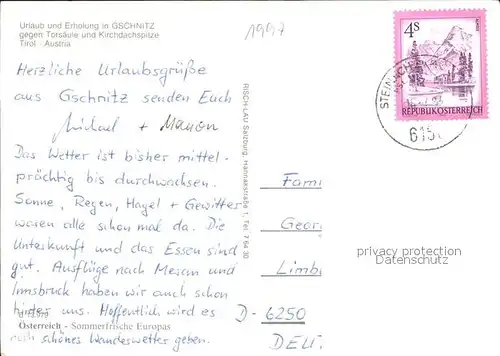 Urlaub und Erholung in GSCHNITZ
gegen Torsäule und Kirchdachspitze
Tirol Austria
1997
Herzliche Urlaubsgrüße
aus Gschnitz senden Euch
Michael + Manon
Das Wetter ist bisher mittel-
prächtig bis durchwachsen.
Sonne, Regen, Hagel + Gewitter
waren alle schon mal da. Die
Unterkunft und das Essen sind
gut. Ausflüge nach Meran und
Innsbruck haben wir auch schon
hinter uns. Hoffentlich wird es
Österreich - Sommerfrische Europas
noch schönes Wanderwetter geben.
RISCH-LAU Salzburg, Hannakstraße 1, Tel. 7 64 30
4S
REPUBLIK ÖSTERREICH
STEINACH
615
Fami
Georg
Limb
D-6250
DEUT
privacy protection
Datenschutz